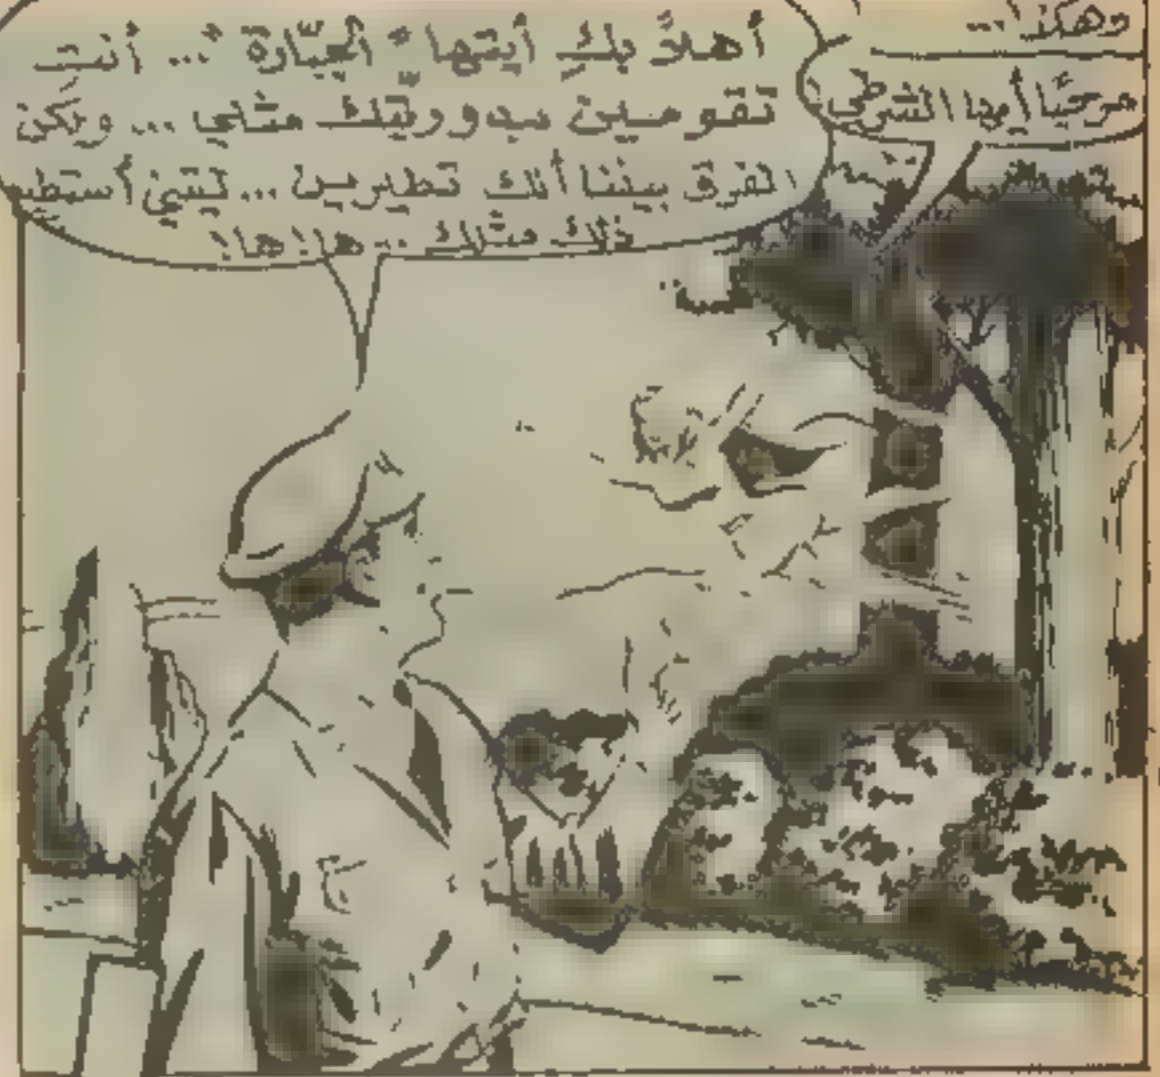 وهكذا...
مرحبًا أيها الشرطي
أهلاً بك أيتها " الجبّارة " ... أنت
تقومين بدوريتك مثلي ... ولكن
الفرق بيننا أنك تطيرين ... ليتني أستطيع
ذلك مثلك .. ها! ها!